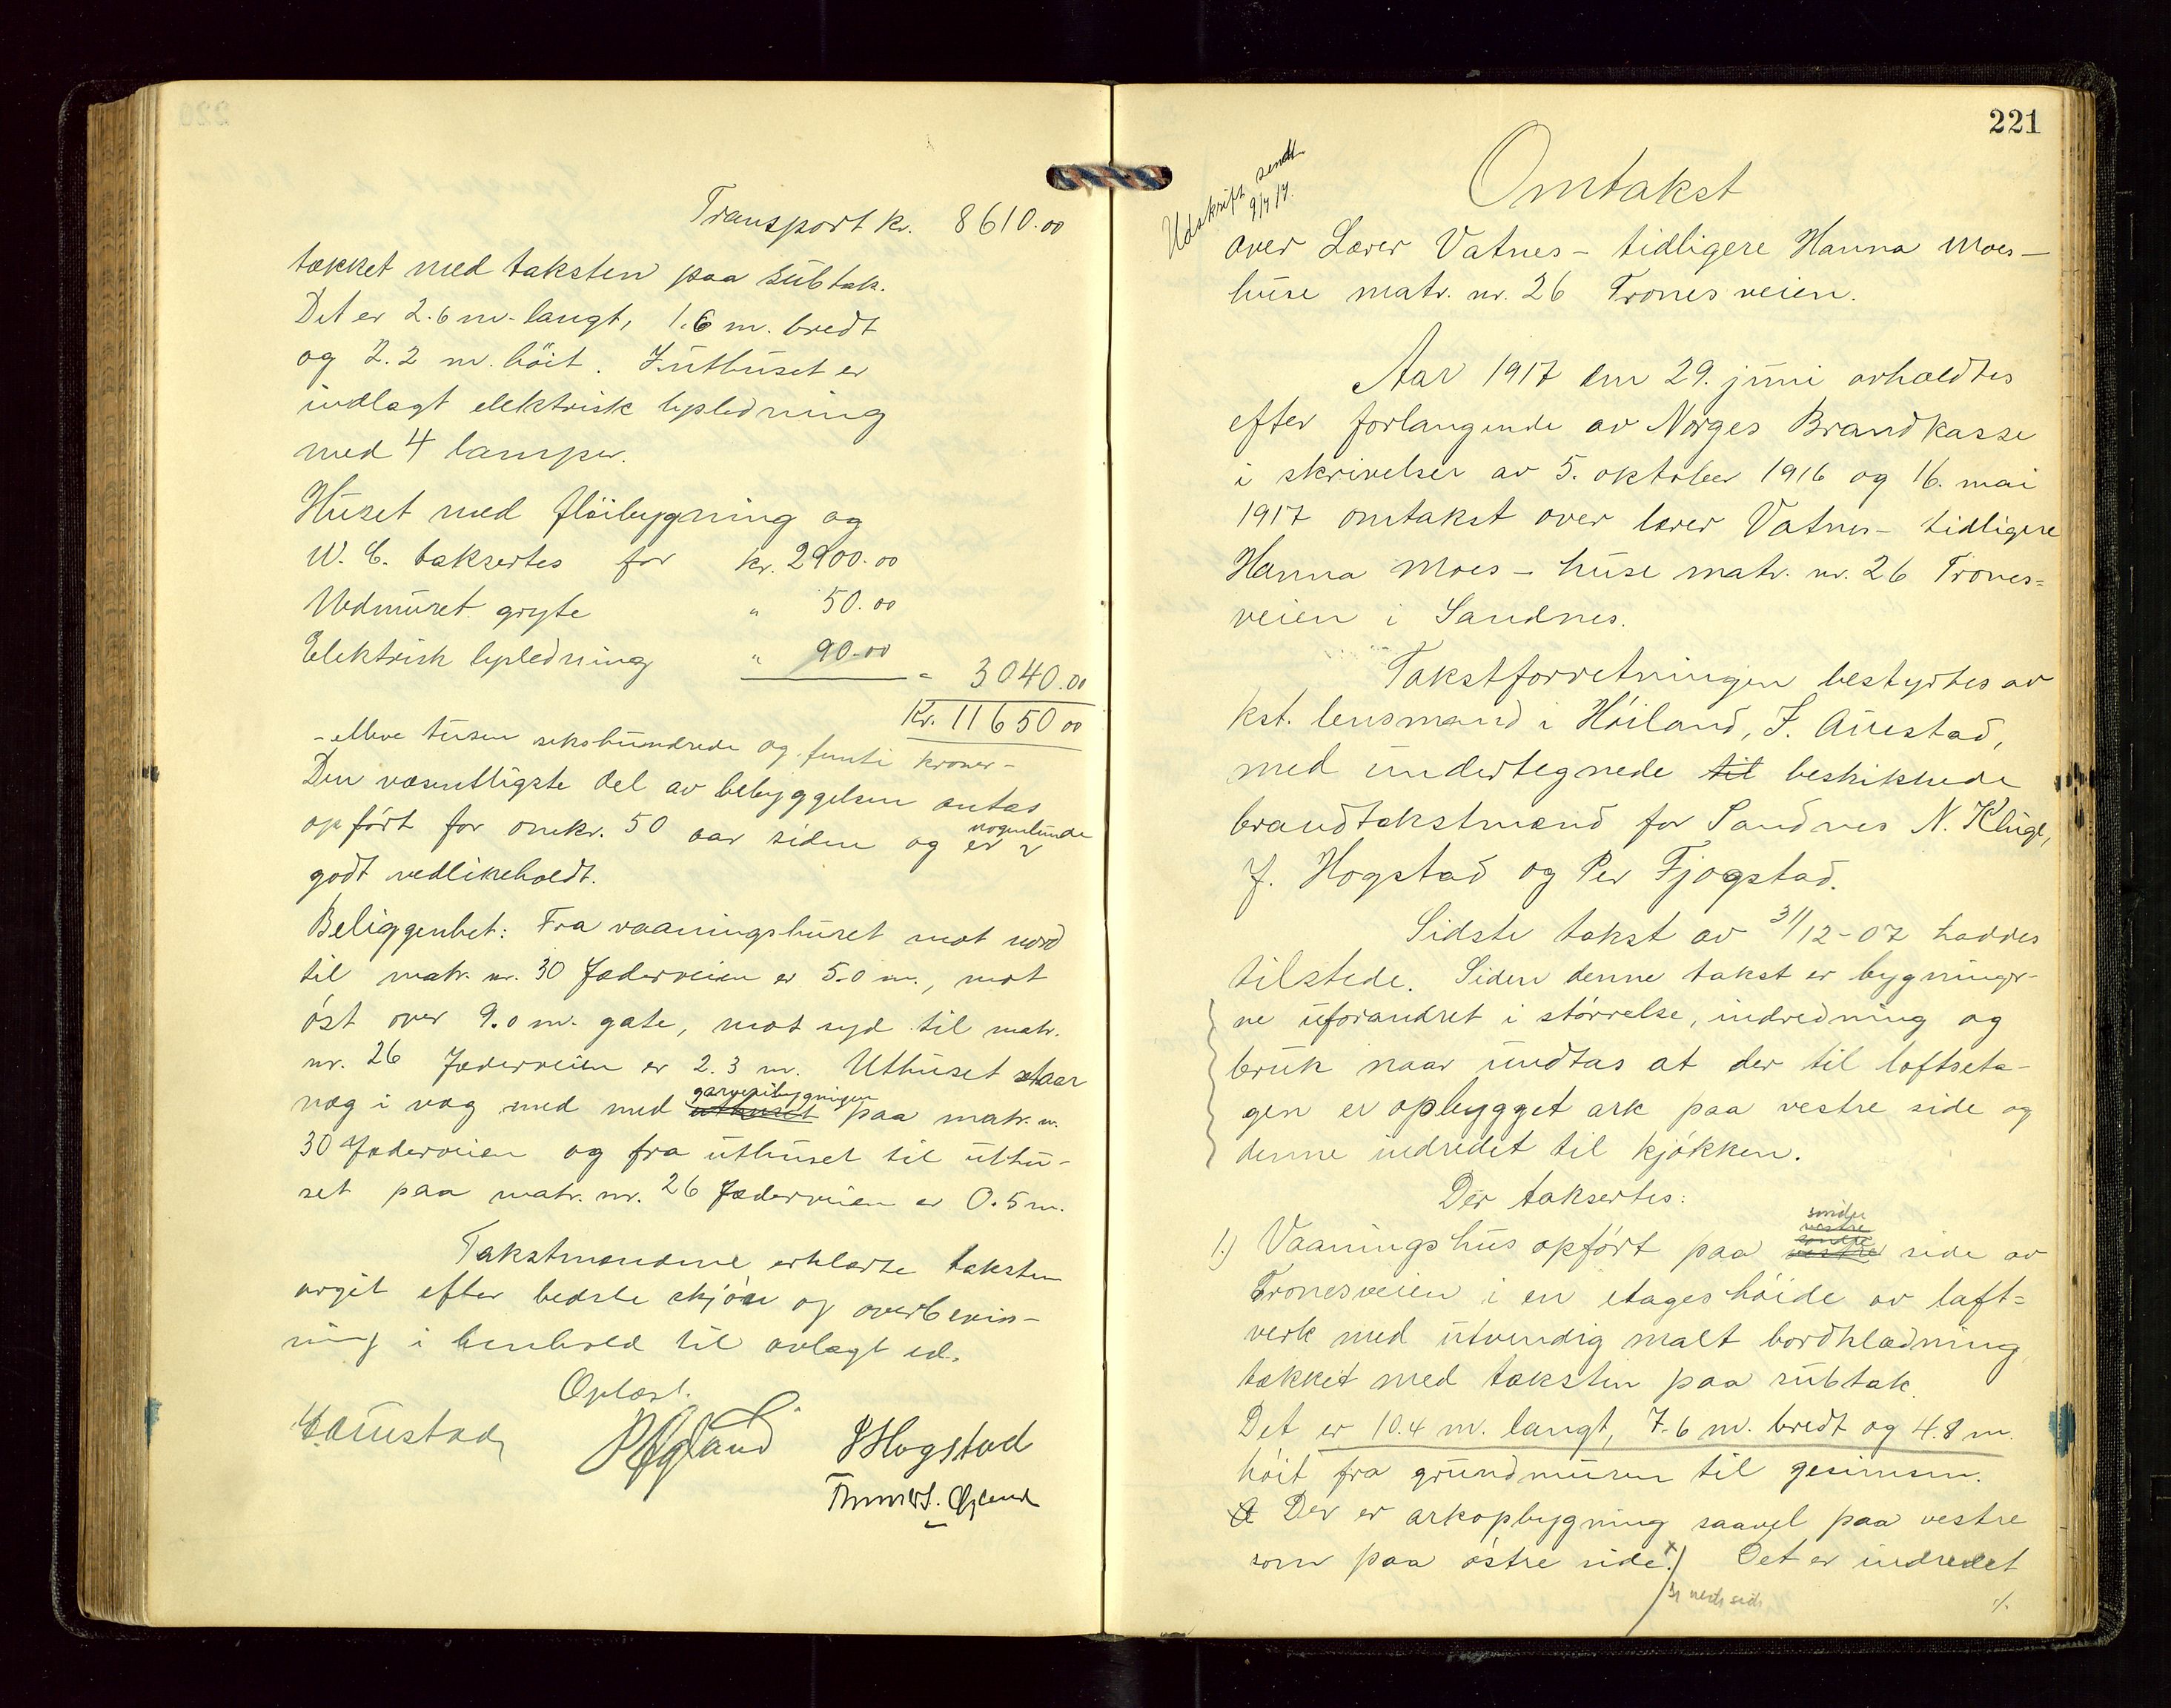 Transport kr. 8610.00
tækket med taksten paa subtak.
Det er 2.6 m. langt, 1.6 m. bredt
og 2.2 m. höit. I uthuset er
indlagt elektrisk lysledning
med 4 lamper.
Huset med flöibygning og
W. C. taksertes for kr. 2900.00
Indmuret gryte " 50.00
Elektrisk lysledning " 90.00
" 3040.00
Kr. 11650.00
- elleve tusen sekshundrede og femti kroner -
Den væsentligste del av bebyggelsen antas
opfört for omkr. 50 aar siden og er nogenlunde
godt vedlikeholdt.
Beliggenhet: Fra vaaningshuset mot nord
til matr. nr. 30 Jæderveien er 5.0 m., mot
öst over 9.0 m. gate, mot syd til matr.
nr. 26 Jæderveien er 2.3 m. Uthuset staar
væg i væg med med uthuset garveribygningen paa matr. nr.
30 Jæderveien og fra uthuset til uthu-
set paa matr. nr. 26 Jæderveien er 0.5 m.
Takstmændene erklærte taksten
avgit efter bedste skjön og overbevis-
ning i henhold til avlagt ed.
Oplæst.
Auestad
J Hogstad
221
Udskrift sendt
9/7 17.
Omtakst
over Lærer Vatnes - tidligere Hanna Moes -
huse matr. nr. 26 Tronesveien.
Aar 1917 den 29. juni avholdtes
efter forlangende av Norges Brandkasse
i skrivelser av 5. oktober 1916 og 16. mai
1917 omtakst over lærer Vatnes - tidligere
Hanna Moes - huse matr. nr. 26 Trones=
veien i Sandnes.
Takstforretningen bestyrtes av
kst. lensmand i Höiland, J. Auestad,
med undertegnede til beskikkede
brandtakstmænd for Sandnes N. Kluge,
J. Hogstad og Per Fjogstad.
Sidste takst av 31/12-07 haddes
tilstede. Siden denne takst er bygninger-
ne uforandret i störrelse, indredning og
bruk naar undtas at der til loftseta-
gen er opbygget ark paa vestre side og
denne indredet til kjökken.
Der taksertes:
1.) Vaaningshus opfört paa vestre söndre vestre söndre side av
Tronesveien i en etages höide av laft=
verk med utvendig malt bordklædning
tækket med taksten paa subtak.
Det er 10.4 m. langt, 7.6 m. bredt og 4.8 m.
höit fra grundmuren til gesimsen.
Der er arkopbygning saavel paa vestre
som paa östre side. x) Det er indredet
se neste side
./.